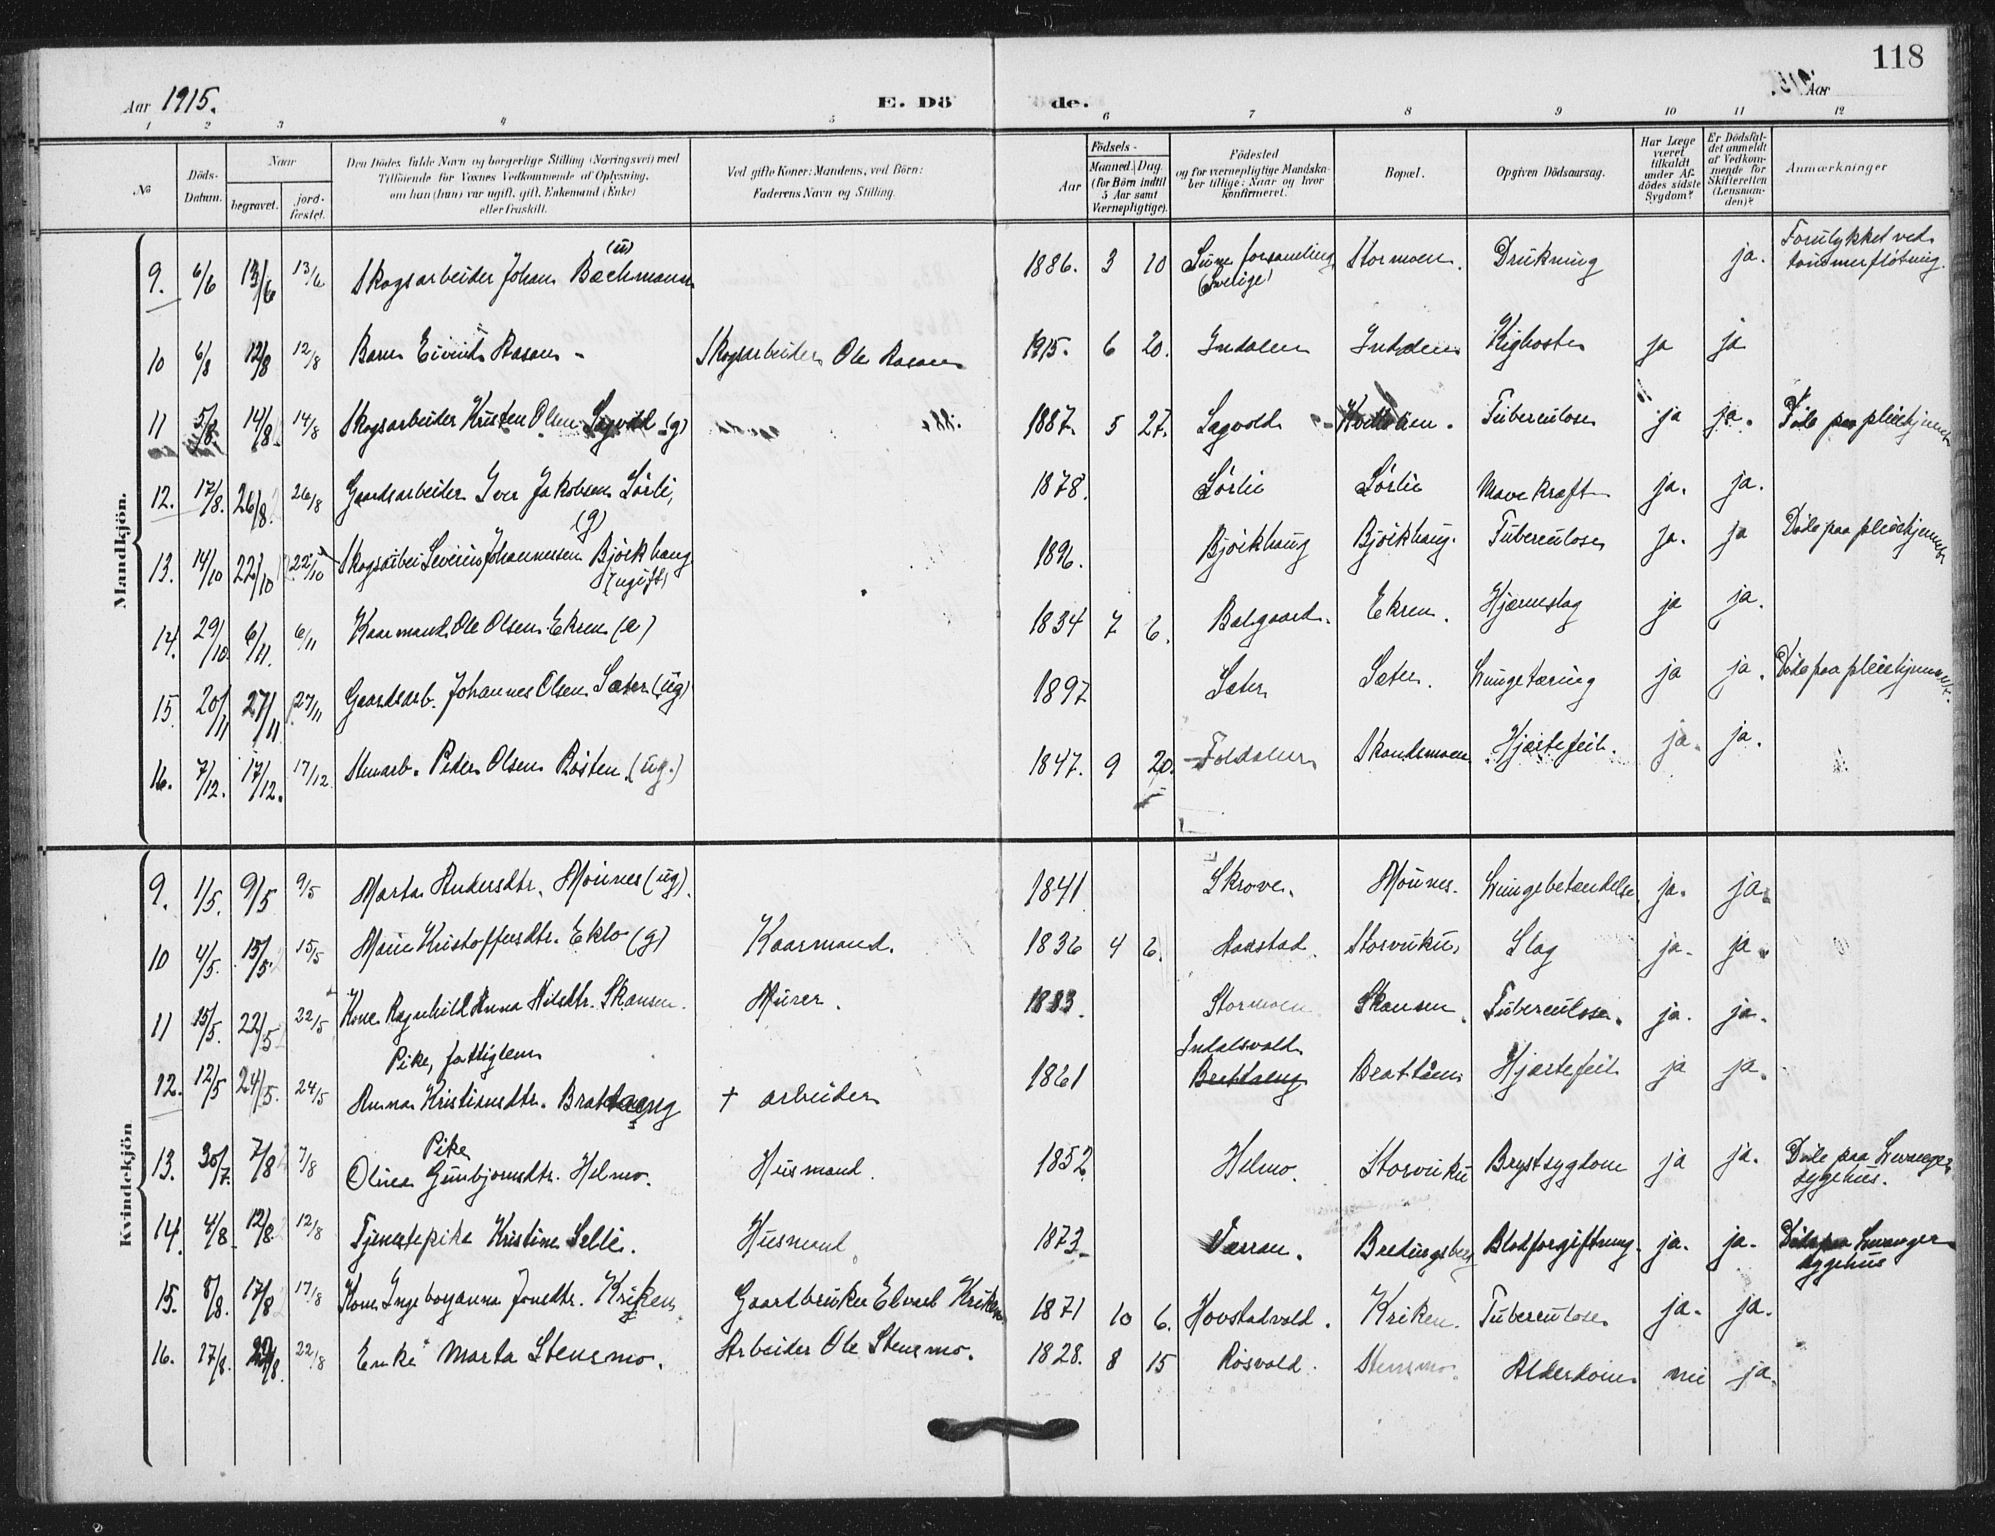 118
Aar 1915. E. Döde. Aar
1 2 3 4 5 6 7 8 9 10 11 12
No Döds-Datum. Naar begravet. jord-fæstet. Den Dödes fulde Navn og borgerlige Stilling (Næringsvei) med Tilföiende for Voxnes Vedkommende af Oplysning, om han (hun) var ugift, gift, Enkemand (Enke) eller fraskilt. Ved gifte Koner: Mandens, ved Börn: Faderens Navn og Stilling. Födsels- Aar Maaned. Dag (for Börn indtil 5 Aar samt Værnepligtige). Födested og for værnepligtige Mandska-ber tillige: Naar og hvor konfirmeret. Bopæl. Opgiven Dödsaarsag. Har Læge været tilkaldt under Af-dödes sidste Sygdom? Er Dödsfal-det anmeldt af Vedkom-mende for Skifteretten (Lensman-den)? Anmærkninger
Mandkjön.
9. 6/6 13/6 13/6 Skogsarbeider Johan Bachmann (u) 1886. 3 10 Sune forsamling (Sverige) Stormoen. Drukning ja. Forulykket ved tømmerfløtning.
10 6/8 12/8 12/8 Barn Eivind Rosan - Skogsarbeider Ole Rosan 1915. 6 20. Indalen Indalen Kighoste ja ja
11 5/8 14/8 14/8 Skogsarbeider Kristen Olsen Sagvold (g) 1887. 5 27. Sagvold Tuberculose ja ja. Døde paa pleiehjemmet
12. 17/8. 26/8. 26/8 Gaardsarbeider Iver Jakobsen Sørli, (g) 1878. Sørlie Sørlie Mave Kræft ja. ja.
13. 14/10 22/10 22/10 Skogsarbei Severin Johannessen Bjørkhaug (ugift) 1896. Bjørkhaug Bjørkhaug. Tuberculose ja. ja Døde paa pleiehjemmet
14. 29/10. 6/11. 6/11 Kaarmand. Ole Olsen Ekren (e) 1834 7 6. Balgaard. Ekren. Hjærneslag ja ja.
15. 20/11 27/11 27/11 Gaardsarb. Johannes Olsen Sæter (ug) 1897 Sæter Sæter. Lungetæring ja ja. Døde paa pleiehjemmet.
16. 7/12. 17/12. 17/12 Stenarb. Peder Olsen Rosten (ug.) 1847. 9 20. Foldalen Skandsmoen Hjærtefeil. ja. ja.
Kvindekjön
9. 1/5. 9/5 9/5 Marta Andersdtr. Mounes (ug). 1841 Skrove. Mounes. Lungebetændelse ja. ja.
10 4/5. 15/5. 15/5 Marie Kristoffersdtr. Eklo (g) Kaarmand. 1836 4 6. Storviku, Slag ja. ja.
11 15/5. 22/5 22/5 Kone Ragnhild Anna Nilsdtr. Skansen. Murer. 1883. Stormoen. Skansen. Tuberculose. ja. ja.
12. 12/5 24/5. 24/5 Pike, fattiglem Anna Kristiansdtr. Brattaeng + arbeider 1861 Indalsvold Brattaeng Hjærtefeil ja ja.
13. 30/7. 7/8 7/8 Pike Olina Gunbjørnsdtr. Helmo. Husmand. 1852 Helmo. Storviku Brystsygdom ja ja. Døde paa Levanger sygehus.
14. 4/8 12/8 12/8 Tjenestepike Kristine Selli. Husmand. 1873. Værran. Bredingsberg Blodforgiftning. ja. ja. Døde paa Levanger sygehus
15. 8/8. 17/8 17/8 Kone Ingeboranna Jonsdtr. Kriken. Gaardbruker Edvard Kriken 1871 10 6. Hovstadvold. Kriken. Tuberculose ja. ja.
16. 17/8. 22/8. 22/8 Enke Marta Stensmo. Arbeider Ole Stensmo. 1828. 8 15 Rosvold. Stensmo. Alderdom nei ja.